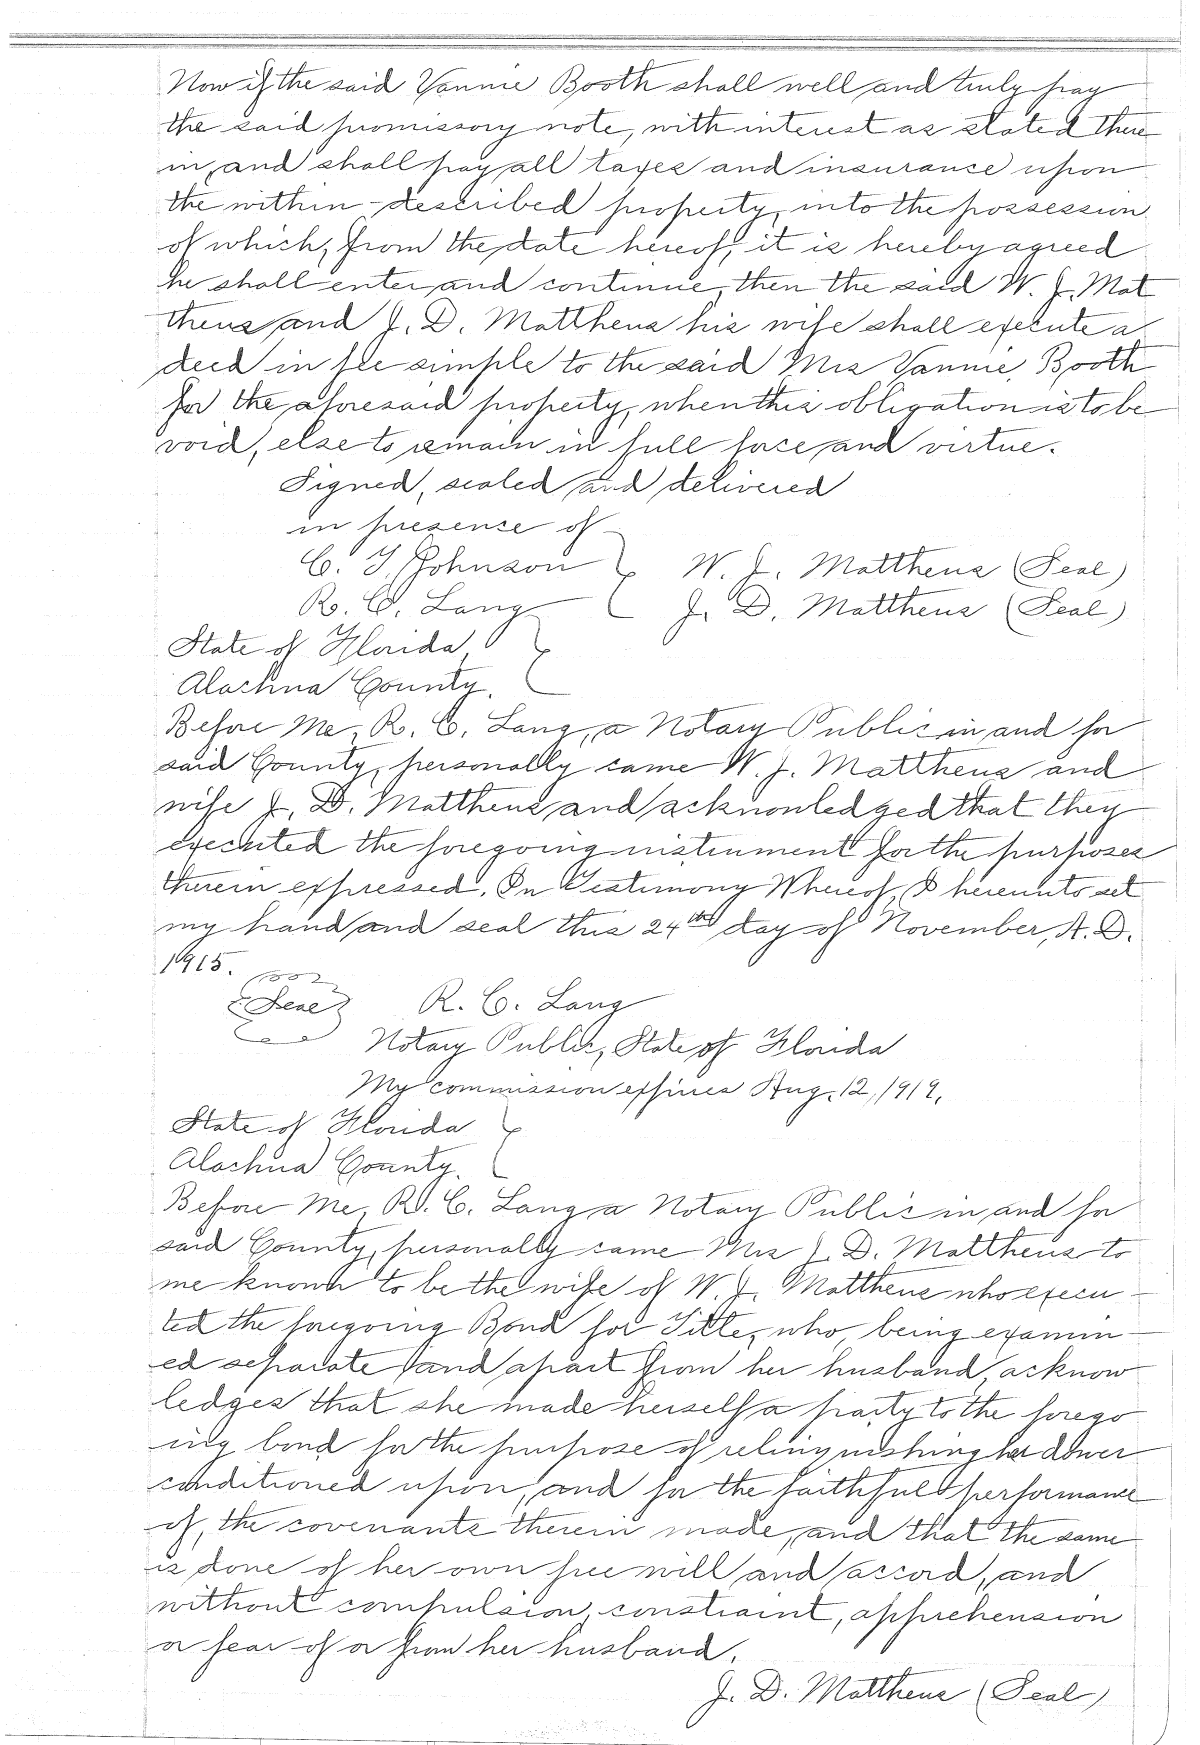 Now if the said Vannie Booth shall well and truly pay
the said promissory note, with interest as stated there
in, and shall pay all taxes and insurance upon
the within-described property, into the possession
of which, from the date hereof, it is hereby agreed
he shall enter and continue, then the said W. J. Mat
thews and J. D. Matthews his wife shall execute a
deed in fee simple to the said Mrs Vannie Booth
for the aforesaid property, when this obligation is to be
void, else to remain in full force and virtue.
Signed, sealed and delivered
in presence of
C. T. Johnson } W. J. Matthews (Seal)
R. C. Lang } J. D. Matthews (Seal)
State of Florida }
Alachua County. }
Before Me, R. C. Lang, a Notary Public in and for
said County, personally came W. J. Matthews and
wife J. D. Matthews and acknowledged that they
executed the foregoing instrument for the purposes
therein expressed. In Testimony Whereof, I hereunto set
my hand and seal this 24th day of November, A. D.
1915.
Seal R. C. Lang
Notary Public, State of Florida
My commission expires Aug. 12, 1919.
State of Florida }
Alachua County. }
Before Me, R. C. Lang a Notary Public in and for
said County, personally came Mrs J. D. Matthews to
me known to be the wife of W. J. Matthews who execu-
ted the foregoing Bond for Title, who being examin-
ed separate and apart from her husband, acknow
ledges that she made herself a party to the forego
ing bond for the purpose of relinquishing her dower
conditioned upon, and for the faithful performance
of, the covenants therein made, and that the same
is done of her own free will and accord, and
without compulsion, constraint, apprehension
or fear of or from her husband.
J. D. Matthews (Seal)